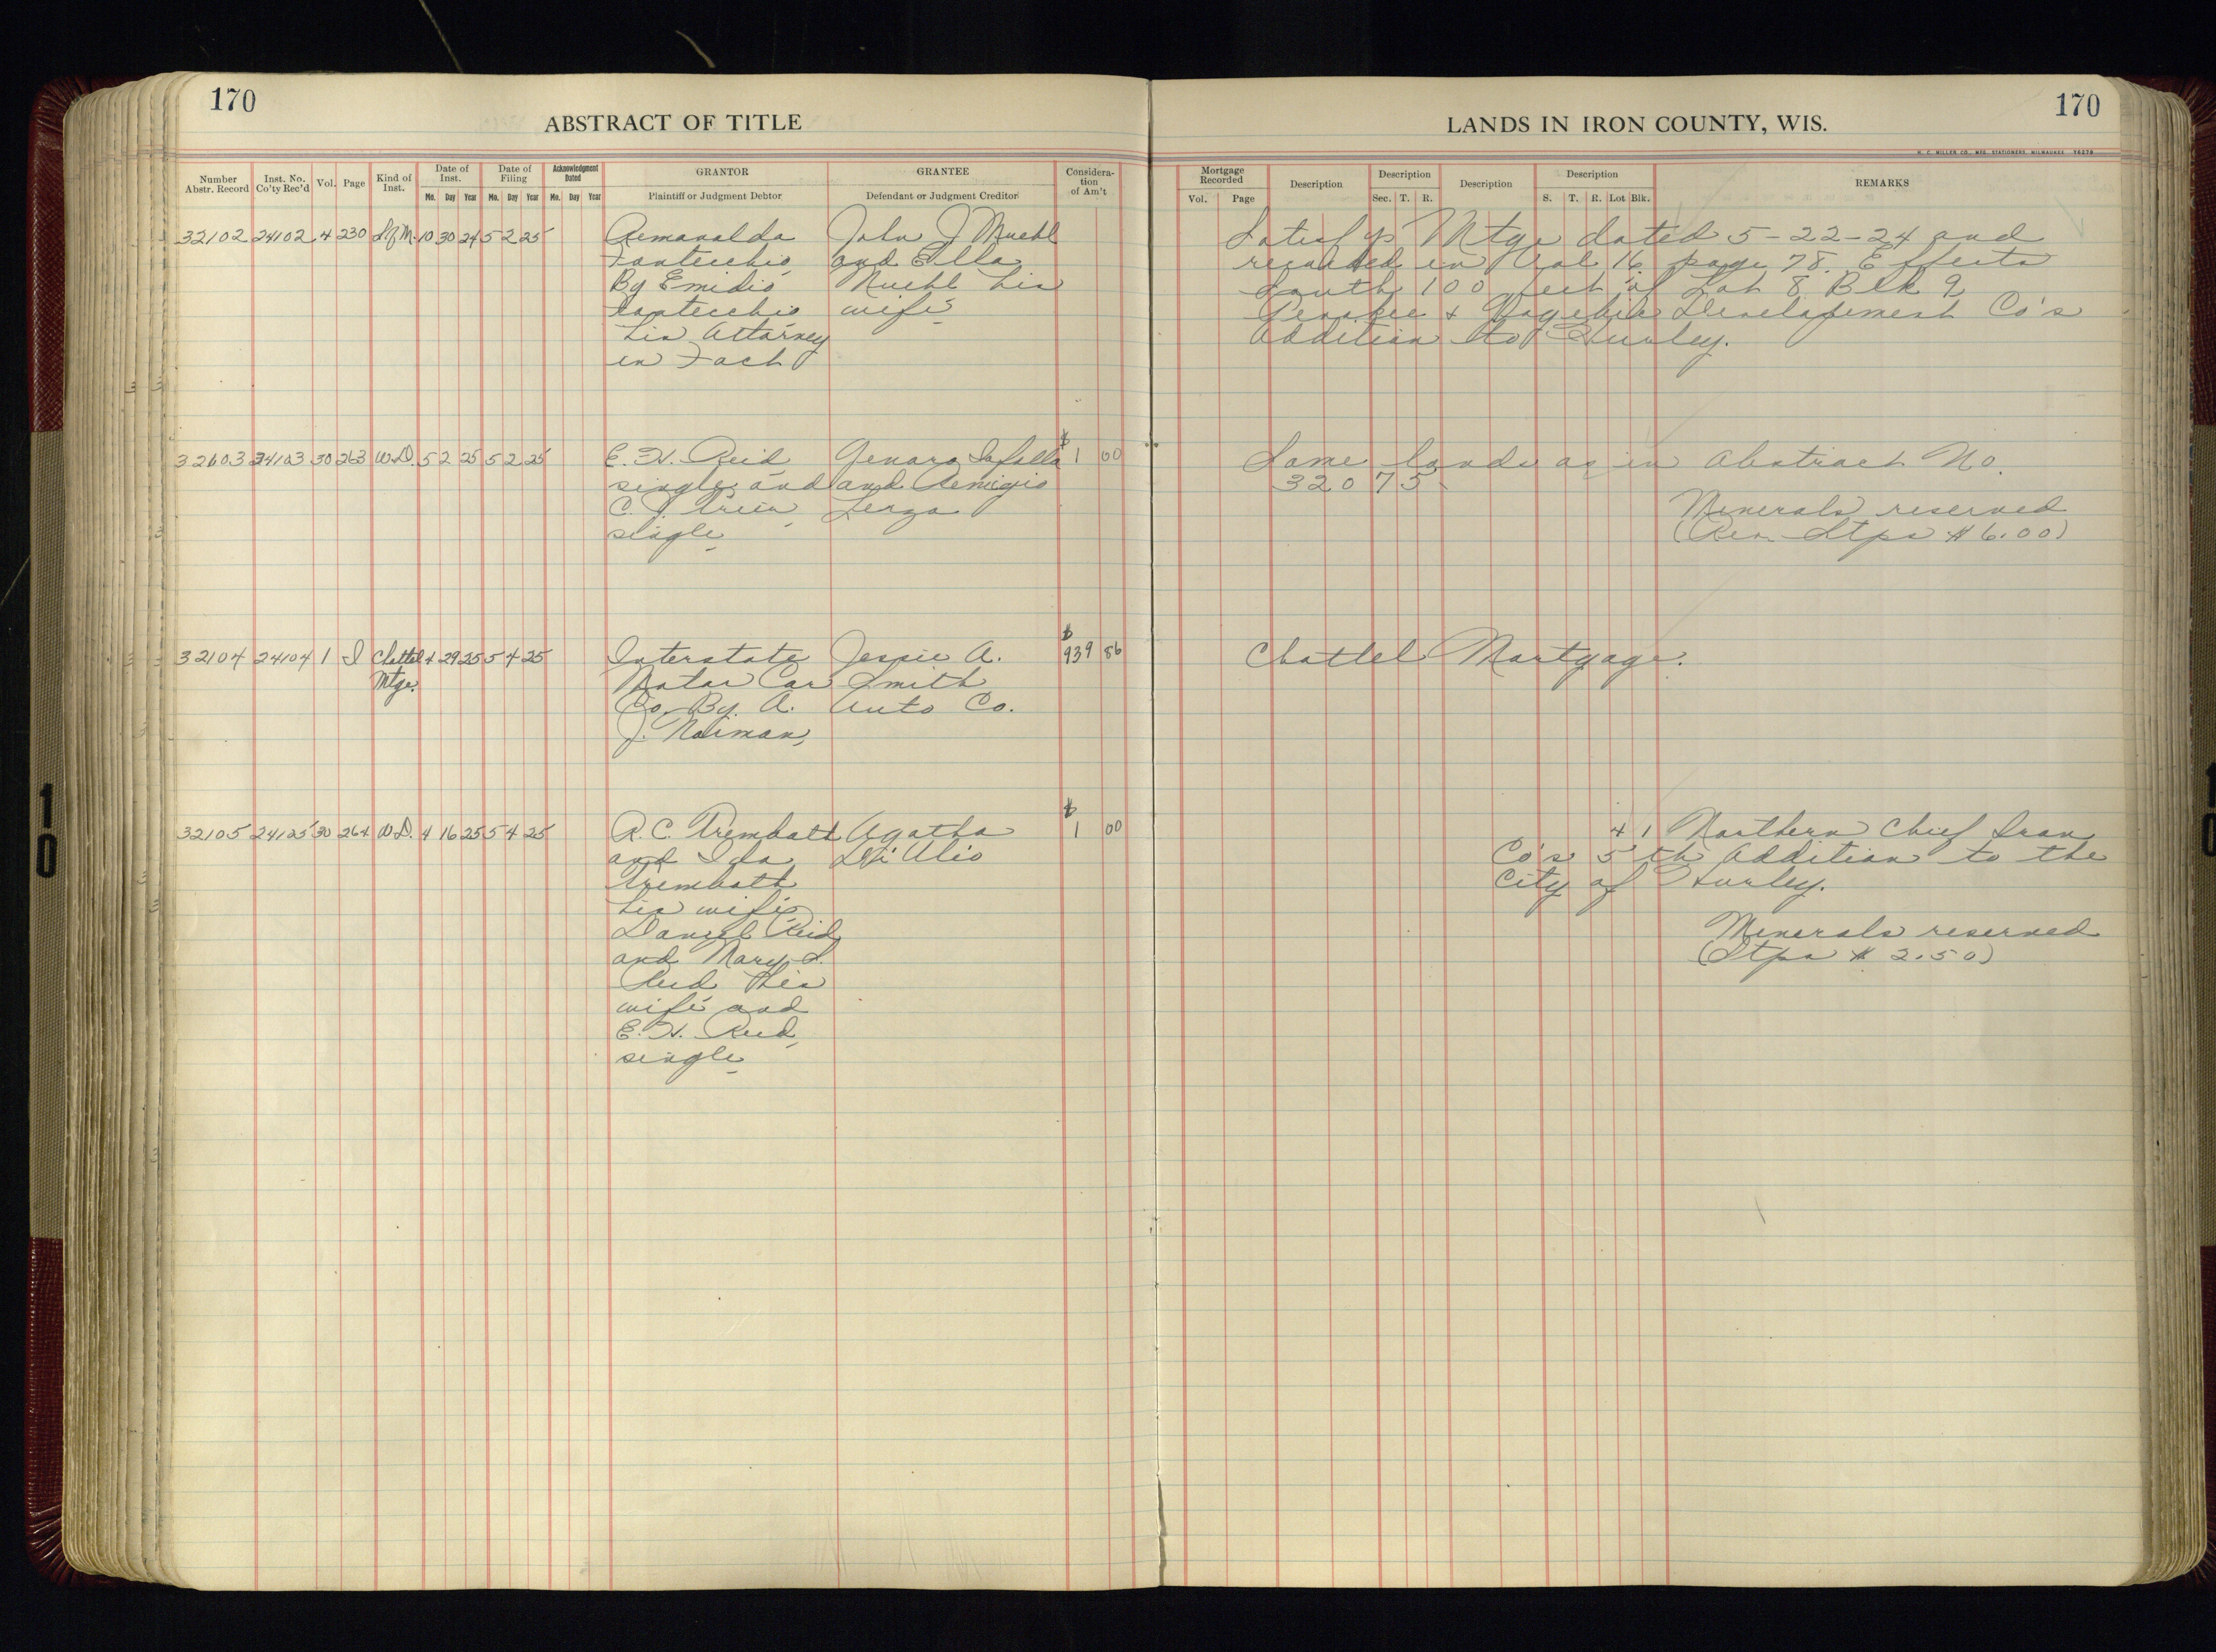 170
ABSTRACT OF TITLE
Number Abstr. Record
Inst. No. Co'ty Rec'd
Vol.
Page
Kind of Inst.
Date of Inst.
Mo. Day Year
Date of Filing
Mo. Day Year
Acknowledgment Dated
Mo. Day Year
GRANTOR
Plaintiff or Judgment Debtor
GRANTEE
Defendant or Judgment Creditor
Considera-
tion
of Am't
32102 24102 4 230 S of M. 10 30 24 5 2 25
John J
and Ella
By Emidio
his
wife
his Attorney
in Fact
32103 24103 30 263 W.D. 5 2 25 5 2 25
E. H. Reid
Genaro
$ 1 00
single and
and Remigio
C.
single
32104 24104 1 I Chattel Mtge. 4 29 25 5 4 25
Interstate
Jessie A.
$ 939 86
Motor Car
Smith
Co. By. A.
Auto Co.
J.
32105 24105 30 264 W.D. 4 16 25 5 4 25
R. C. Trembath
Agatha
$ 1 00
and Ida
Di Ulio
Trembath
his wife
Daniel Reid
and Mary L.
Reid his
wife and
E. H. Reid,
single
LANDS IN IRON COUNTY, WIS.
170
H. C. MILLER CO., MFG. STATIONERS, MILWAUKEE
Mortgage Recorded
Vol. Page
Description
Description
Sec. T. R.
Description
Description
S. T. R. Lot Blk.
REMARKS
Satisfys Mtge dated 5-22-24 and
recorded in Vol 16 page 78. Effects
South 100 feet of Lot 8 Blk 9
Penokee & Gogebic Development Co's
Addition to Hurley.
Same lands as in Abstract No.
32075
Minerals reserved
(Rev. Stps $6.00)
Chattel Mortgage.
4 1 Northern Chief Iron
Co's 5th Addition to the
City of Hurley.
Minerals reserved
(Stps $ 2.50)